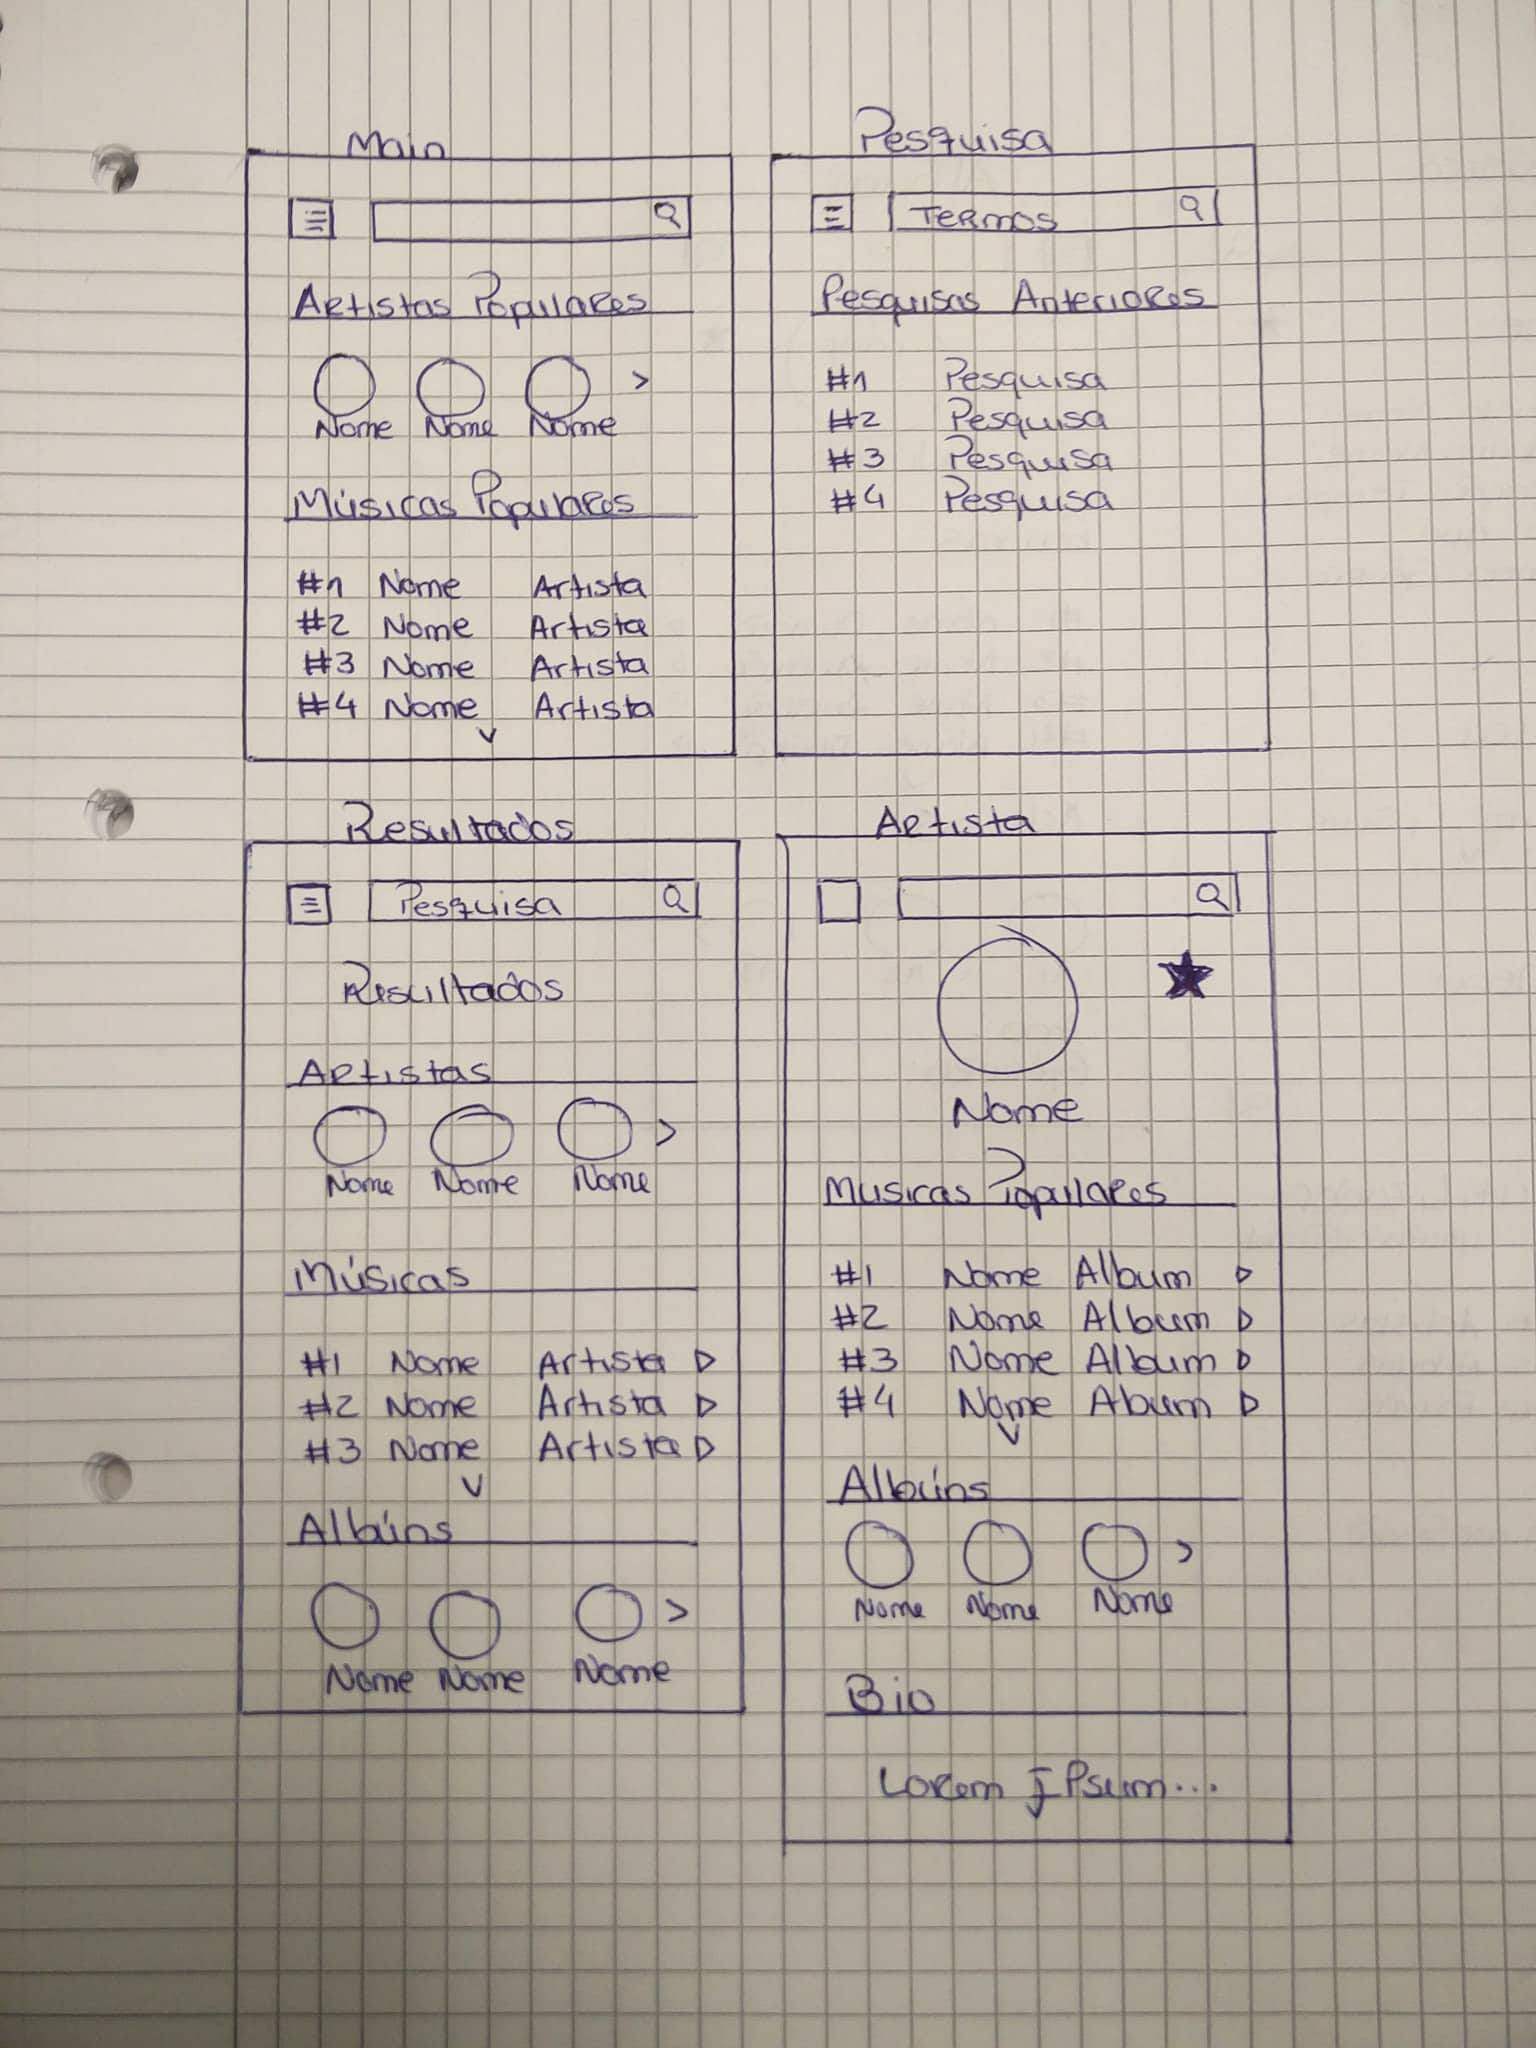 Main
Artistas Populares
Nome Nome Nome >
Músicas Populares
#1 Nome Artista
#2 Nome Artista
#3 Nome Artista
#4 Nome Artista
Pesquisa
Termos
Pesquisas Anteriores
#1 Pesquisa
#2 Pesquisa
#3 Pesquisa
#4 Pesquisa
Resultados
Pesquisa
Resultados
Artistas
Nome Nome Nome >
Músicas
#1 Nome Artista
#2 Nome Artista
#3 Nome Artista
Albúns
Nome Nome Nome >
Artista
Nome
Musicas Populares
#1 Nome Album
#2 Nome Album
#3 Nome Album
#4 Nome Abum
Albúns
Nome Nome Nome >
Bio
Lorem Ipsum...